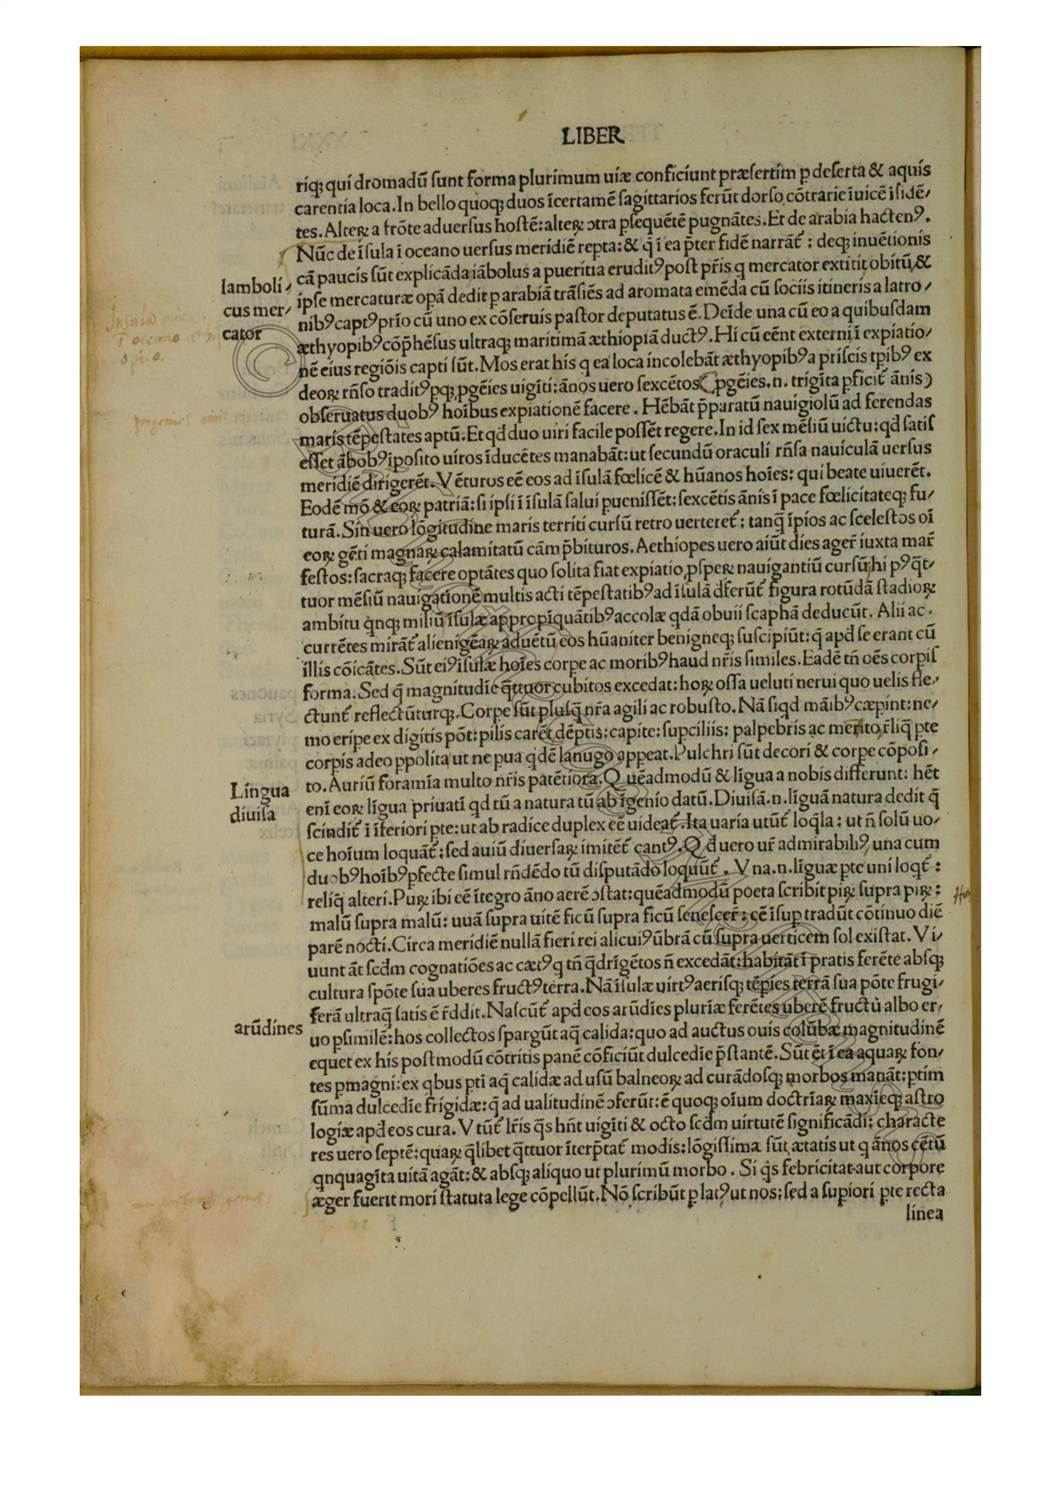 LIBER
riq; qui dromadū sunt forma plurimum uiæ conficiunt præsertim p deserta & aquis
carentia loca. In bello quoq; duos īcertamē sagittarios ferūt dorso cōtrarie īuicē īsidē/
tes. Alteꝝ a frōte aduersus hostē: alteꝝ ↄtra psequētē pugnātes. Et de arabia hactenꝰ.
Nūc de īsula ī oceano uersus meridiē repta: & q̄ ī ea p̄ter fidē narrāt̄: deq; inuētionis
cā paucis sūt explicāda iābolus a pueritia eruditꝰ post pr̄is q mercator extitit obitū, &
Iamboli/
cus mer/
cator
ipse mercaturæ opā dedit p arabiā trāsiēs ad aromata emēda cū sociis itineris a latro/
nibꝰ captꝰ prīo cū uno ex cōseruis pastor deputatus ē. Deīde una cū eo a quibusdam
æthyopibꝰ cōp̄hēsus ultraq; maritimā æthiopiā ductꝰ. Hi cū eēnt externi ī expiatio/
nē eius regiōis capti sūt. Mos erat his q ea loca incolebāt æthyopibꝰ a priscis tpibꝰ ex
deoꝝ rn̄so traditꝰ pq; pgēies uigīti: ānos uero sexcētos (pgēies .n. trigīta pficit̄ ānis)
obseruatus duobꝰ hoībus expiationē facere. Hēbāt p̄paratū nauigiolū ad ferendas
maris tēpestates aptū. Et qd duo uiri facile possēt regere. In id sex mēsiū uictu: qd satis
esset ābobꝰ īposito uiros īducētes manabāt: ut secundū oraculi rn̄sa nauiculā uersus
meridiē dirigerēt. Vēturos eē eos ad īsulā fœlicē & hūanos hoīes: qui beate uiuerēt.
Eodē mō & eoꝝ patriā: si ipsi ī īsulā salui puenissēt: sexcētis ānis ī pace fœlicitateq; fu/
turā. Sin uero lōgitudine maris territi cursū retro uerteret̄: tanq̄ īpios ac scelestos oī
eoꝝ gēti magnaꝝ calamitatū cām p̄bituros. Aethiopes uero aiūt dies ager̄ iuxta mar̄
festos: sacraq; facere optātes quo solita fiat expiatio, pspeꝝ nauigantiū cursū, hi pꝰ q̄t/
tuor mēsiū nauigationē multis acti tēpestatibꝰ ad īsulā dferūt̄ figura rotūdā stadioꝝ
ambitu qnq; miliū īsulæ appropīquātibꝰ accolæ qdā obuii scaphā deducūt. Alii ac.
currētes mirāt̄ alienigēaꝝ aduētū eos hūaniter benigneq; suscipiūt: q̄ apd se erant cū
illis cōicātes. Sūt eiꝰ īsulæ hoīes corpe ac moribꝰ haud nr̄is similes. Eadē tn̄ oēs corpis
forma. Sed q̄ magnitudīe q̄ttuor cubitos excedat: hoꝝ ossa ueluti nerui quo uelis fle/
ctunt̄ reflectūturq;. Corpe sūt plusq̄ nr̄a agili ac robusto. Nā siqd māibꝰ cæpint: ne/
mo eripe ex digitis pōt: pilis carēt dēptis: capite: supciliis: palpebris ac mento, r̄liq̄ pte
corpis adeo ppolita ut ne pua qdē lanugo appeat. Pulchri sūt decori & corpe cōposi/
to. Auriū foramīa multo nr̄is patētiora. Quēadmodū & līgua a nobis differunt: hēt
Lingua
diuisa
enī eoꝝ līgua priuatī qd tū a natura tū ab īgenio datū. Diuisā .n. līguā natura dedit q̄
scindit̄ ī īferiori pte: ut ab radice duplex eē uideat̄. Ita uaria utūt̄ loq̄la: ut n̄ solū uo/
ce hoīum loquāt̄: sed auiū diuersaꝝ imitēt̄ cantꝰ. Qd uero ur̄ admirabiliꝰ, una cum
duobꝰ hoībꝰ pfecte simul rn̄dēdo tū disputādo loquūt̄. Vna .n. līguæ pte uni loqt̄:
reliq̄ alteri. Puꝝ ibi eē ītegro āno aerē ↄstat: quēadmodū poeta scribit piꝝ supra piꝝ:
malū supra malū: uuā supra uitē ficū supra ficū senescer̄: eē īsup tradūt cōtinuo diē
parē nocti. Circa meridiē nullā fieri rei alicuiꝰ ūbrā cū supra uerticem sol existat. Vi/
uunt āt scdm cognatiōes ac cætꝰ q tn̄ q̄drīgētos n̄ excedāt: habitāt ī pratis ferēte absq;
cultura spōte sua uberes fructꝰ terra. Nā īsulæ uirtꝰ aerisq; tēpies terrā sua pōte frugi/
ferā ultraq̄ satis ē r̄ddit. Nascūt̄ apd eos arūdies pluriæ ferētes uberē fructū albo er/
arūdines
uo psimilē: hos collectos spargūt aq̄ calida: quo ad auctus ouis colūbæ magnitudinē
equet ex his postmodū cōtritis panē cōficiūt dulcedīe p̄stantē. Sūt ēt ī ea aquaꝝ fon/
tes pmagni: ex qbus pti aq̄ calidæ ad usū balneoꝝ ad curādosq; morbos manāt: ptim
sūma dulcedīe frigidæ: q̄ ad ualitudinē ↄferūt: ē quoq; oīum doctrīaꝝ maxīeq; astro
logiæ apd eos cura. Vtūt̄ lr̄is q̄s hn̄t uigiti & octo scdm uirtutē significādi: characte
res uero septē: quaꝝ q̄libet q̄ttuor īterp̄tat̄ modis: lōgissima sūt ætatis ut q ānos cētū
qnquagīta uitā agāt: & absq; aliquo ut plurimū morbo. Si q̄s febricitat aut corpore
æger fuerit mori statuta lege cōpellūt. Nō scribūt p latꝰ ut nos: sed a supiori pte recta
linea